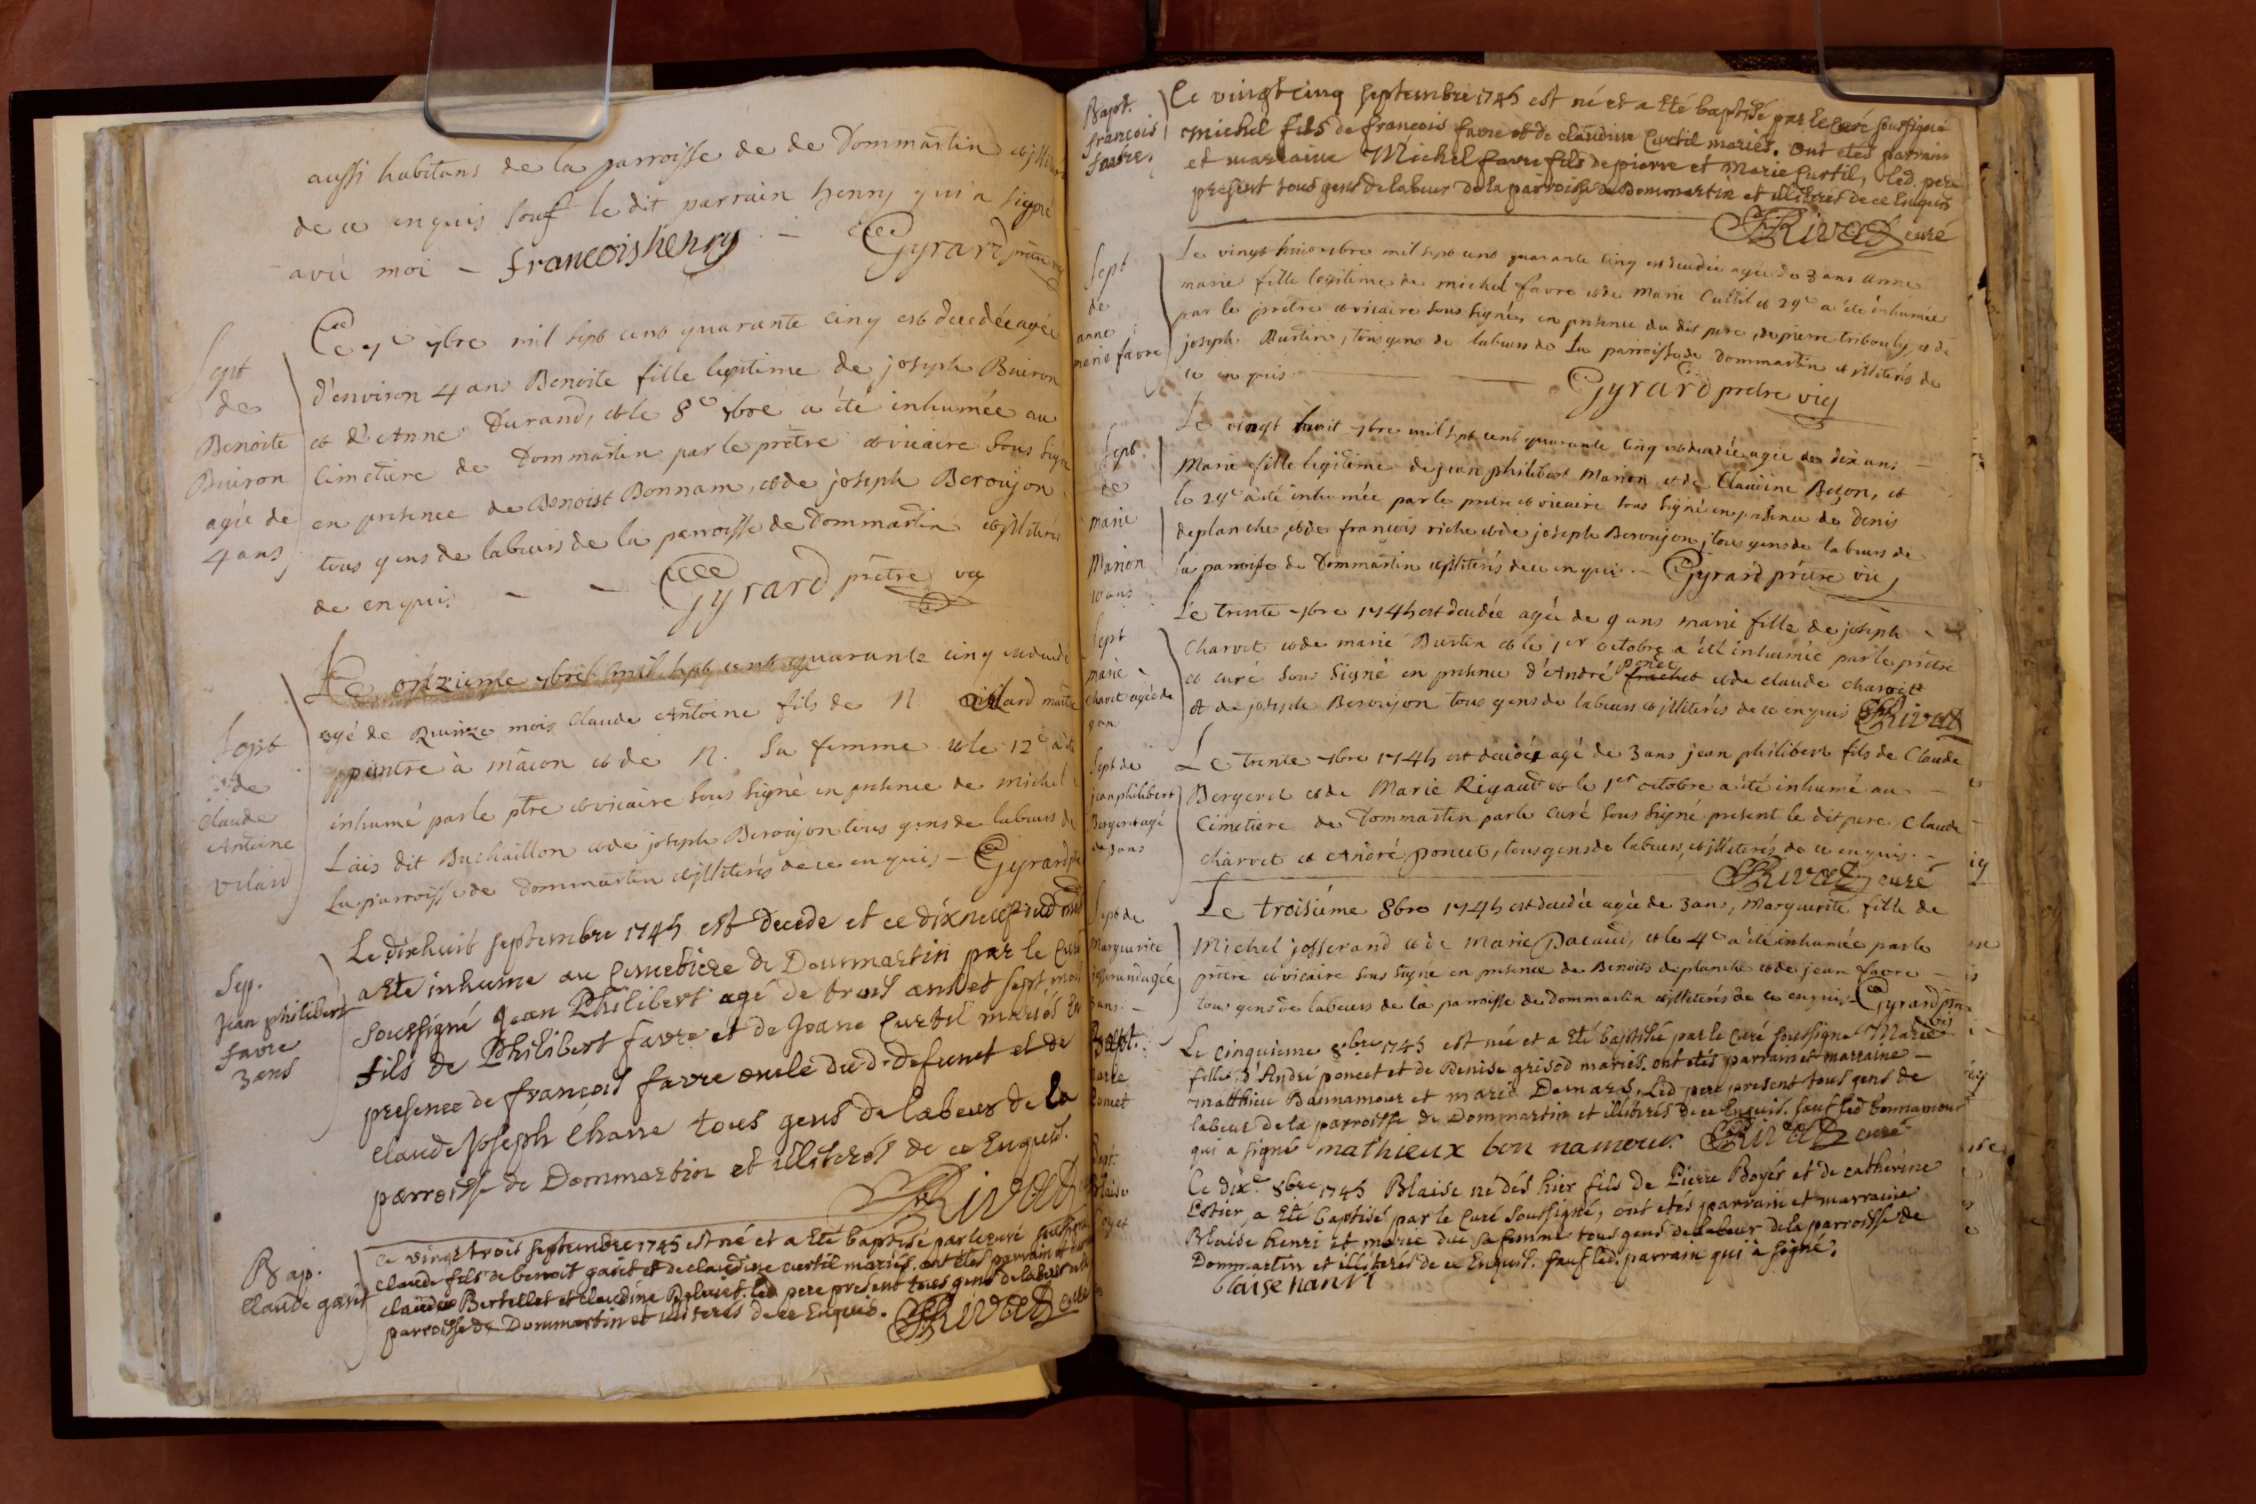 aussi habitans de la parroisse de de Dommartin
de ce enquis sauf le dit parrain henry qui a signé
avec moi - francois henry - Gyrard
Sept
de
Benoite
Buiron
agée de
4 ans
Le 7e 7bre mil sept cent quarante cinq est decedée agée
d'environ 4 ans Benoite fille legitime de joseph Buiron
et d'Anne Durand, et le 8e 7bre a été inhumée au
Cimetiere de Dommartin par le prêtre et vicaire sous
en presence de Benoist Bonnam, et de joseph Beroujon
tous gens de labeurs de la parroisse de Dommartin et jlliterés
de enquis - - Gyrard prêtre
Sept
de
Claude
Antoine
Vilard
Le onzieme 7bre mil sept cent quarante cinq
agé de Quinze mois Claude Antoine fils de N vilard
ppeintre à mâcon et de N. sa femme et le 12e
inhumé par le ptre et vicaire sous signé en presence de michel
Lais dit Buchaillon et de joseph Beroujon tous gens de labeurs de
La parroisse de Dommartin et jlliterés de ce enquis - Gyrard
Sep.
Jean philibert
favre
3 ans
Le dixhuit septembre 1745 est decede et ce dixneuf
a Ete inhume au Cimetiere de Dommartin par le Curé
soussigné Jean Philibert agé de trois ans et sept mois
fils de Philibert favre et de Jeane Curtil mariés En
presence de francois favre oncle dud. defunct et de
claude Joseph Charre tous gens de labeur de la
parroisse de Dommartin et illiterés de ce Enquis.
Rivat
Bap.
Claude
Ce vingt trois septembre 1745 est né et a Eté baptisé par le curé
claude fils de benoit et de claudine curtil mariés. ont étés parrain et
claude Berthelet et claudine led pere present tous gens de labeur
parroisse de Dommartin et illiterés de ce Enquis. Rivat curé
Bapt.
francois
favre
Ce vingt cinq septembre 1745 est né et a Eté baptisé par le Curé soussigné
Michel fils de francois favre et de claudine Curtil mariés. Ont etés parrain
et marraine Michel favre fils de pierre et Marie Curtil, led. pere
present tous gens de labeur de la parroisse de Dommartin et illiterés de ce Enquis
Rivat curé
Sept
de
anne
marie favre
Le vingt mil sept cent quarante cinq est decedée agée de 3 ans Anne
marie fille legitime de michel favre et de Marie Curtil et 29e a été inhumée
par le pretre et vicaire sous signé, en presence du dit pere, de pierre et de
joseph Burtin, tous gens de labeurs de La parroisse de Dommartin et jlliterés de
ce enquis - Gyrard pretre vic
Sept.
de
marie
Marion
10 ans
Le vingt huit 7bre mil sept cent quarante cinq est decedée agée de dix ans
Marie fille legitime de jean philibert Marion et de Claudine Boton, et
le 29e a été inhumée par le pretre et vicaire sous signé en presence de Denis
deplanche, et de francois riche et de joseph Beroujon, tous gens de labeurs de
la parroisse de Dommartin et jlliterés de ce enquis - Gyrard prêtre vic
Sept
marie
Charvet agée de
9 an
Le trente 7bre 1745 est decedée agée de 9 ans marie fille de joseph
Charvet et de marie Burtin et le 1er octobre a été inhumée par le prêtre
et curé sous signé en presence d'André poncet et de claude charvet
et de joseph Beroujon tous gens de labeurs et jlliterés de ce enquis Rivat
Sept de
jean philibert
Bergeret agé
de 3 ans
Le trente 7bre 1745 est decedé agé de 3 ans jean philibert fils de Claude
Bergeret et de Marie Rigaud et le 1er octobre a été inhumé au
Cimetiere de Dommartin par le curé sous signé present le dit pere Claude
charvet et André poncet, tous gens de labeurs, et jlliterés de ce enquis. -
Rivat curé
Sept de
Marguerite
josserand agée
3 ans. -
Le troisiéme 8bre 1745 est decedée agée de 3 ans, Marguerite fille de
Michel josserand et de Marie Dacaud, et le 4e a été inhumée par le
prêtre et vicaire sous signé en presence de Benoits deplanche et de jean favre -
tous gens de labeurs de la parroisse de Dommartin et jlliterés de ce enquis Gyrard
Bapt.
Marie
Poncet
Le Cinquieme 8bre 1745 est née et a Eté baptisée par le Curé soussigné Marie
fille d'André poncet et de Denise grisod mariés. ont etés parrain et marraine -
matthieu Bonnamour et marie Demars, Led pere present tous gens de
labeur de la parroisse de Dommartin et illiterés de ce Enquis. sauf led bonnamour
qui a signé mathieux bon namour. Rivat curé
Bapt.
Blaise
Boyer
Ce dixe. 8bre 1745 Blaise né dés hier fils de Pierre Boyer et de catherine
Estier, a Eté baptisé par le Curé Soussigné, ont etés parrain et marraine
Blaise henri et marie duc sa femme tous gens de labeur de la parroisse de
Dommartin et illiterés de ce Enquis. sauf led. parrain qui a signé.
blaise hanri